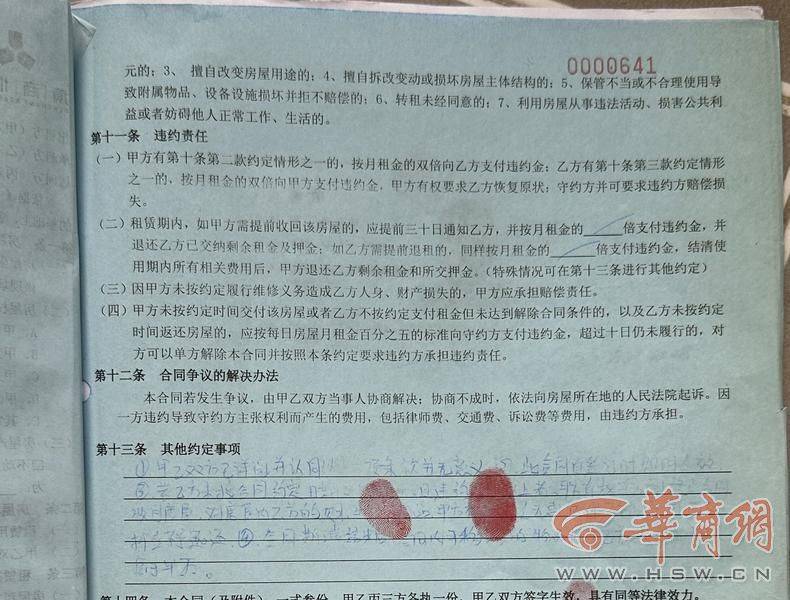 0000641
元的；3、 擅自改变房屋用途的；4、擅自拆改变动或损坏房屋主体结构的；5、保管不当或不合理使用导
致附属物品、设备设施损坏并拒不赔偿的；6、转租未经同意的；7、利用房屋从事违法活动、损害公共利
益或者妨碍他人正常工作、生活的。
第十一条 违约责任
（一）甲方有第十条第二款约定情形之一的，按月租金的双倍向乙方支付违约金；乙方有第十条第三款约定情形
之一的，按月租金的双倍向甲方支付违约金，甲方有权要求乙方恢复原状；守约方并可要求违约方赔偿损
失。
（二）租赁期内，如甲方需提前收回该房屋的，应提前三十日通知乙方，并按月租金的 倍支付违约金，并
退还乙方已交纳剩余租金及押金；如乙方需提前退租的，同样按月租金的 倍支付违约金，结清使
用期内所有相关费用后，甲方退还乙方剩余租金和所交押金。（特殊情况可在第十三条进行其他约定）
（三）因甲方未按约定履行维修义务造成乙方人身、财产损失的，甲方应承担赔偿责任。
（四）甲方未按约定时间交付该房屋或者乙方不按约定支付租金但未达到解除合同条件的，以及乙方未按约定
时间返还房屋的，应按每日房屋月租金百分之五的标准向守约方支付违约金，超过十日仍未履行的，对
方可以单方解除本合同并按照本条约定要求违约方承担违约责任。
第十二条 合同争议的解决办法
本合同若发生争议，由甲乙双方当事人协商解决；协商不成时，依法向房屋所在地的人民法院起诉。因
一方违约导致守约方主张权利而产生的费用，包括律师费、交通费、诉讼费等费用，由违约方承担。
第十三条 其他约定事项
①甲乙双方
华商网
WWW.HSW.CN
第十四条 本合同（及附件）一式叁份，甲乙丙三方各执一份，甲乙双方签字生效，具有同等法律效力。